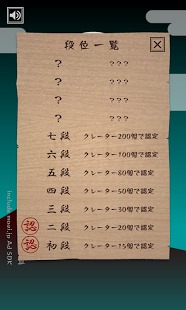 段位一覧
？ ？？？
？ ？？？
？ ？？？
？ ？？？
七段 クレーター200個で認定
六段 クレーター100個で認定
五段 クレーター80個で認定
四段 クレーター50個で認定
三段 クレーター30個で認定
認 二段 クレーター20個で認定
認 初段 クレーター15個で認定
Ad SDK